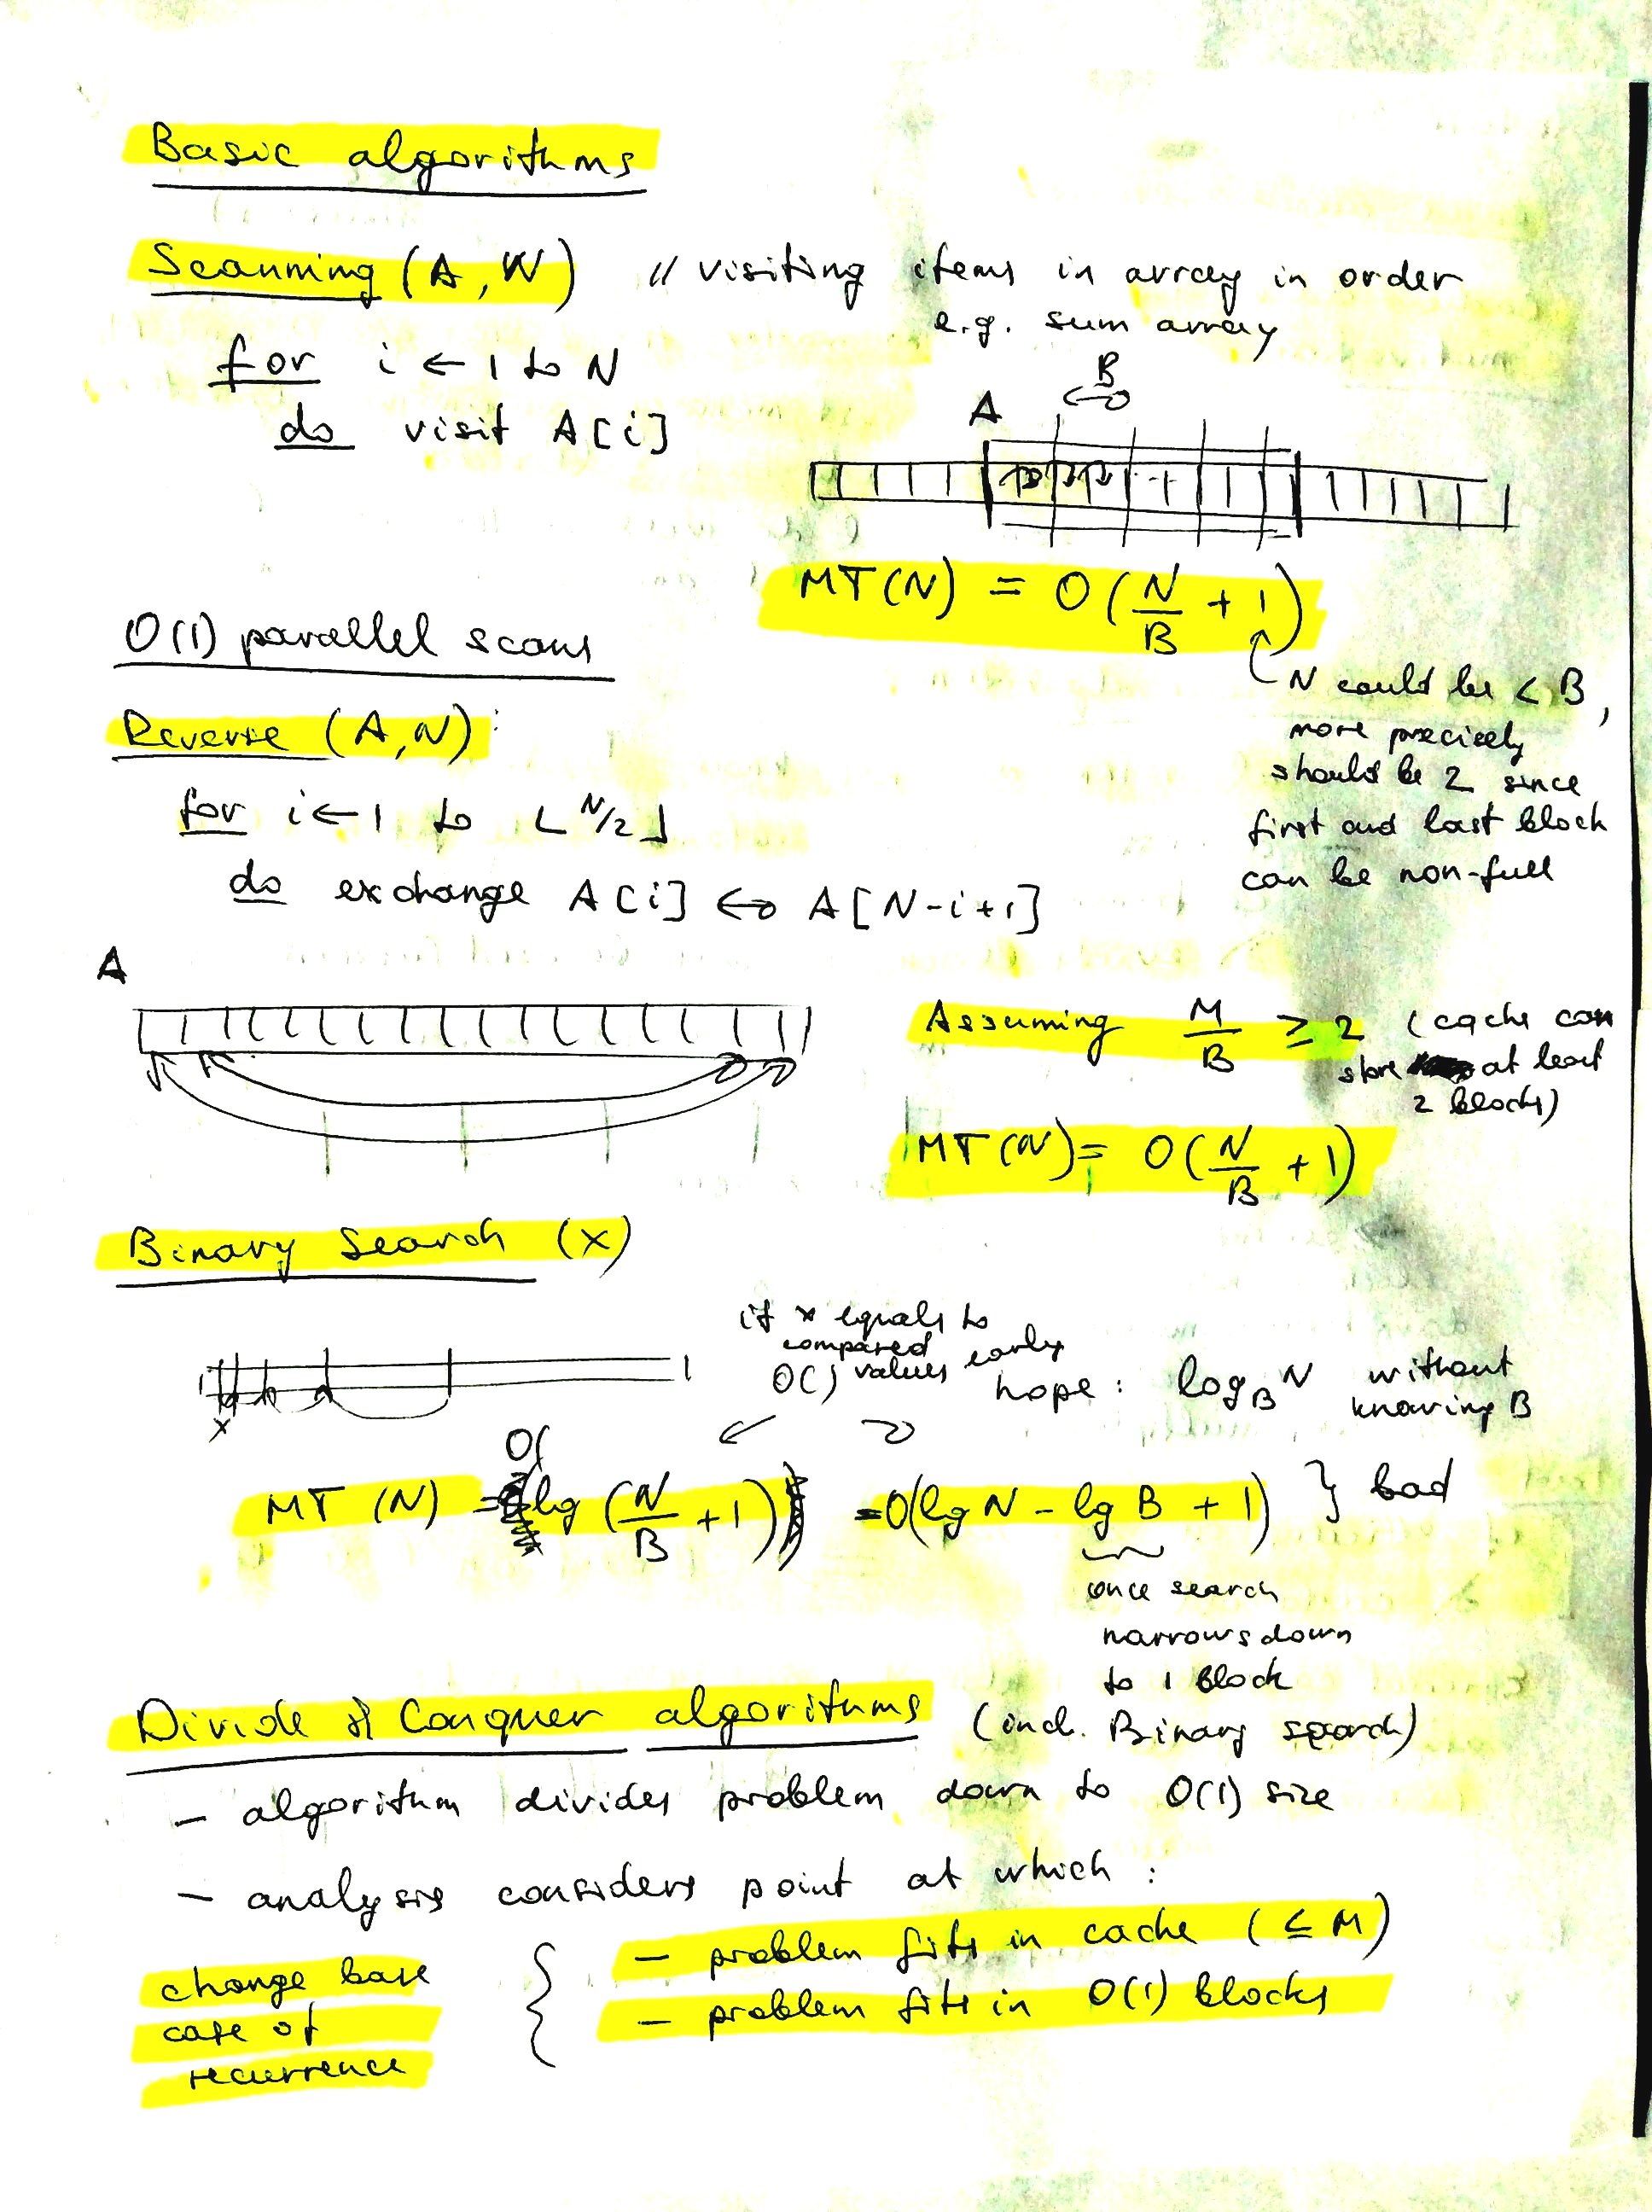 Basic algorithms
Scanning (A, N) // visiting items in array in order
e.g. sum array
for i ← 1 to N
do visit A[i]
B
A
MT(N) = O(N/B + 1)
N could be < B,
more precisely
should be 2 since
first and last block
can be non-full
O(1) parallel scans
Reverse (A,N):
for i ← 1 to ⌊N/2⌋
do exchange A[i] ↔ A[N-i+1]
A
Assuming M/B ≥ 2 (cache can
store at least
2 blocks)
MT(N) = O(N/B + 1)
Binary Search (x)
if x equals to
compared
O() values early
hope: log_B N without
knowing B
x
MT (N) = O(lg (N/B + 1)) = O(lg N - lg B + 1) } bad
once search
narrows down
to 1 block
Divide & Conquer algorithms (incl. Binary search)
- algorithm divides problem down to O(1) size
- analysis considers point at which:
- problem fits in cache (≤ M)
- problem fits in O(1) blocks
change base
case of
recurrence